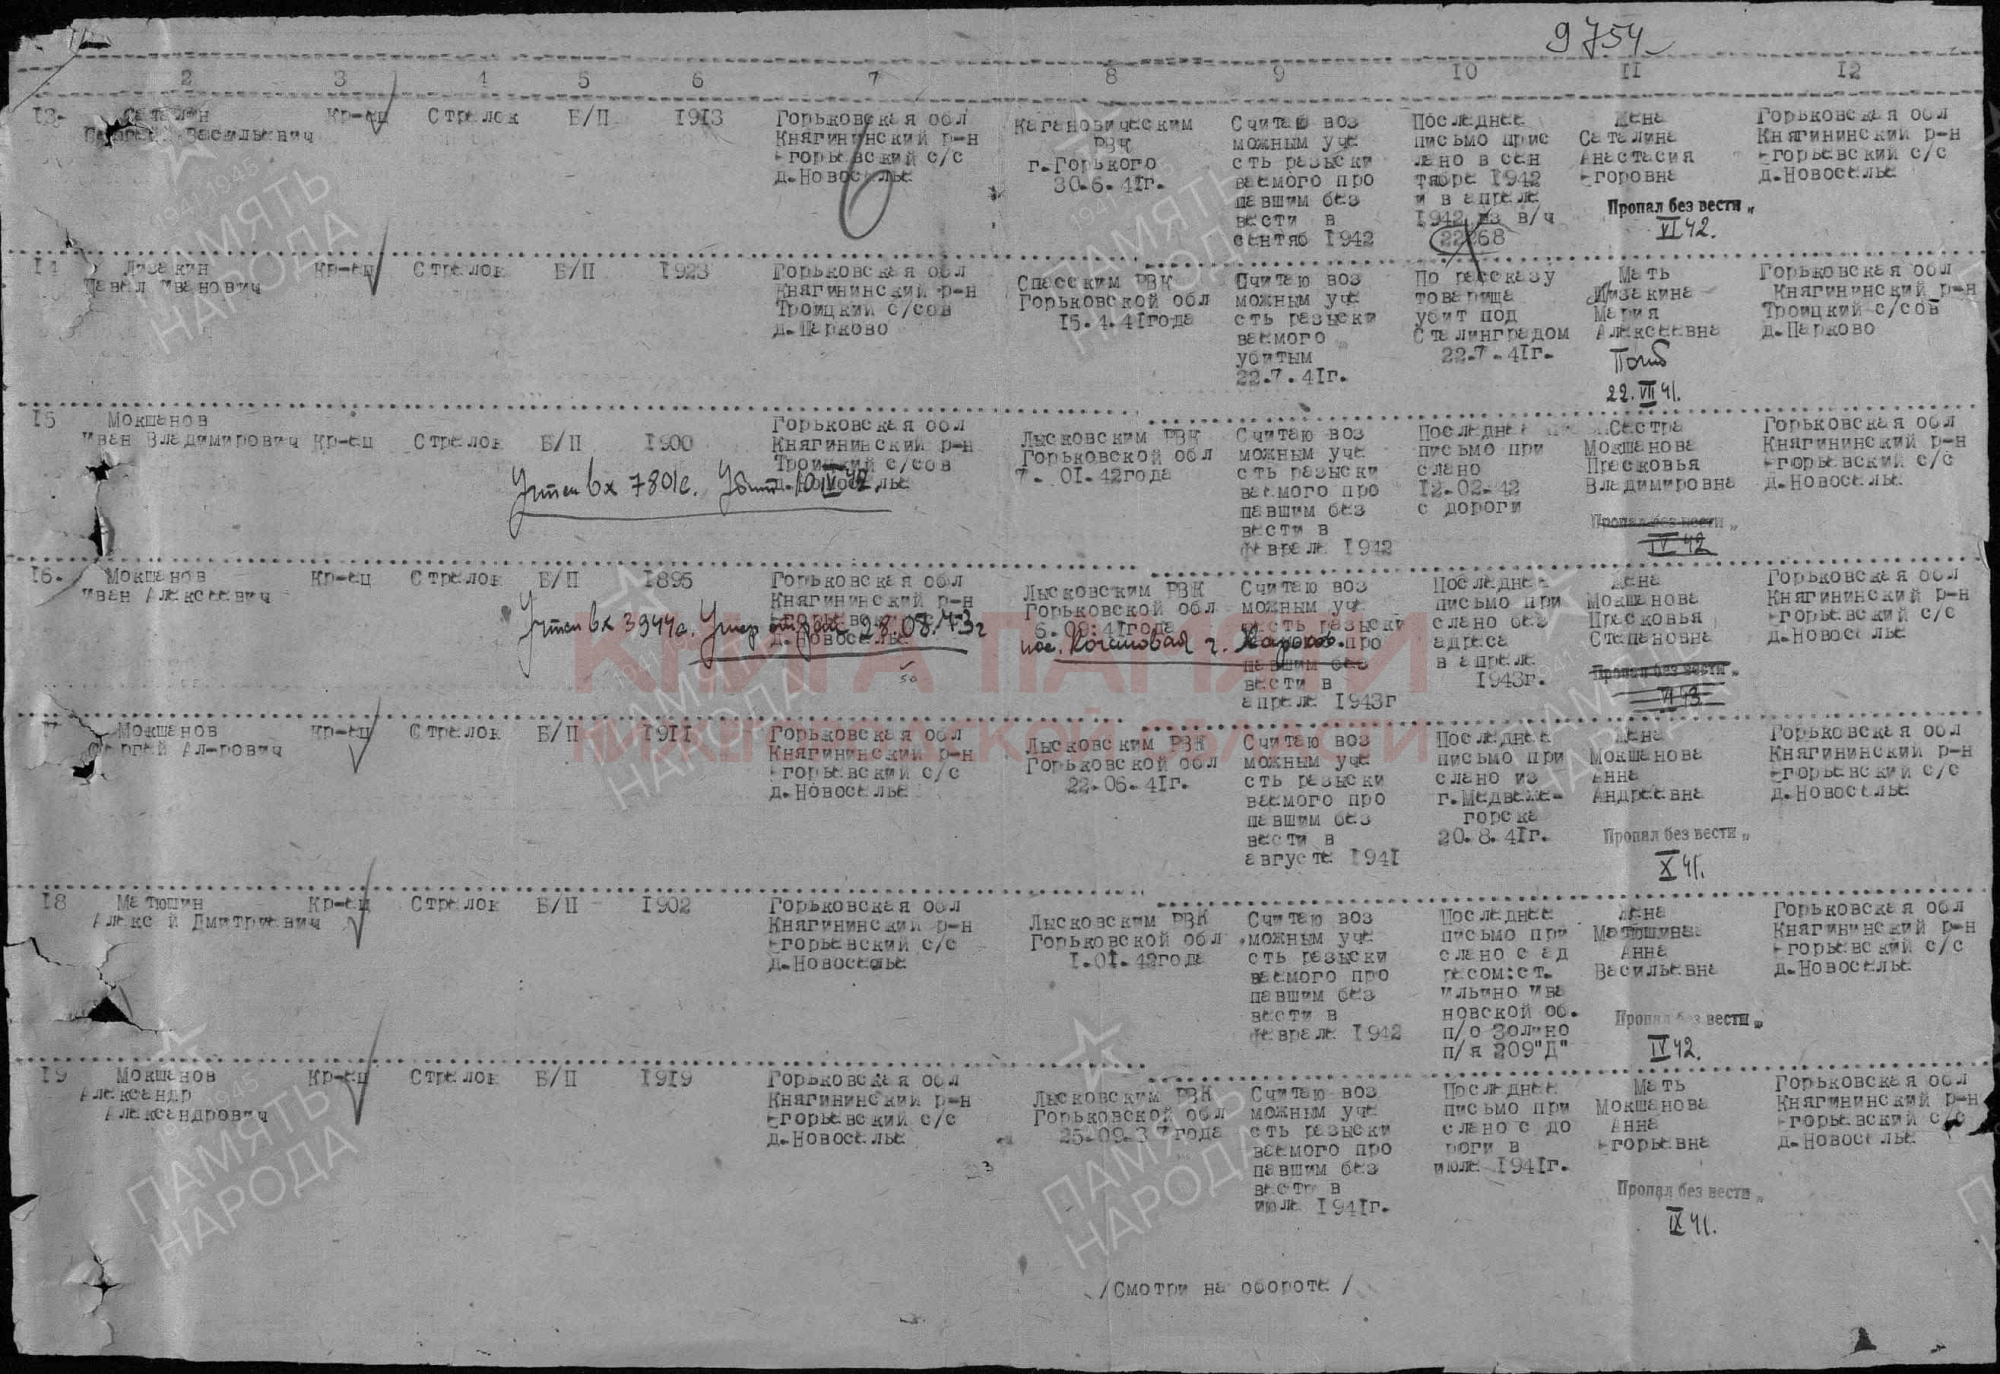 9754
2 3 4 5 6 7 8 9 10 11 12
13- Саталин Кр-ец Стрелок Б/П 1913
Васильевич
Горьковская обл
Княгининский р-н
Егорьевский с/с
д.Новоселье
Кагановическим
РВК
г.Горького
30.6.41г.
Считаю воз
можным уче
сть разыски
ваемого про
павшим без
вести в
сентяб 1942
Последнее
письмо прис
лано в сен
тябре 1942
и в апреле
1942 из в/ч
22268
Жена
Саталина
Анастасия
Егоровна
Пропал без вести
VI 42.
Горьковская обл
Княгининский р-н
Егорьевский с/с
д.Новоселье
14 Лизакин Кр-ец Стрелок Б/П 1923
Павел Иванович
Горьковская обл
Княгининский р-н
Троицкий с/сов
д.Парково
Спасским РВК
Горьковской обл
15.4.41года
Считаю воз
можным уче
сть разыски
ваемого
убитым
22.7.41г.
По рассказу
товарища
убит под
Сталинградом
22.7.41г.
Мать
Лизакина
Мария
Алексеевна
Погиб
22.VII 41.
Горьковская обл
Княгининский р-н
Троицкий с/сов
д.Парково
15 Мокшанов
Иван Владимирович Кр-ец Стрелок Б/П 1900
Учтен вх 7801с. Убит 10.IV 42.
Горьковская обл
Княгининский р-н
Троицкий с/сов
д.Новоселье
Лысковским РВК
Горьковской обл
7-.01.42года
Считаю воз
можным уче
сть разыски
ваемого про
павшим без
вести в
феврале 1942
Последнее
письмо при
слано
12-02-42
с дороги
Сестра
Мокшанова
Прасковья
Владимировна
Пропал без вести
IV 42
Горьковская обл
Княгининский р-н
Егорьевский с/с
д.Новоселье
16. Мокшанов Кр-ец Стрелок Б/П 1895
Иван Алексеевич
Горьковская обл
Княгининский р-н
Егорьевский с/с
д.Новоселье
Учтен вх 3944с. Умер от ран 28.08.43г
пос. г. Харьков.
Лысковским РВК
Горьковской обл
6.09.41года
Считаю воз
можным уче
сть разыски
ваемого про
павшим без
вести в
апреле 1943г
Последнее
письмо при
слано без
адреса
в апреле
1943г.
Жена
Мокшанова
Прасковья
Степановна
Пропал без вести
VI 43
Горьковская обл
Княгининский р-н
Егорьевский с/с
д.Новоселье
КНИГА ПАМЯТИ
НИЖЕГОРОДСКОЙ ОБЛАСТИ
Мокшанов Кр-ец Стрелок Б/П 1911
Сергей Ал-рович
Горьковская обл
Княгининский р-н
Егорьевский с/с
д.Новоселье
Лысковским РВК
Горьковской обл
22-06-41г.
Считаю воз
можным уче
сть разыски
ваемого про
павшим без
вести в
августе 1941
Последнее
письмо при
слано из
г.Медвеже-
горска
20.8.41г.
Жена
Мокшанова
Анна
Андреевна
Пропал без вести
X 41.
Горьковская обл
Княгининский р-н
Егорьевский с/с
д.Новоселье
18 Матюшин Кр-ец Стрелок Б/П 1902
Алексей Дмитриевич
Горьковская обл
Княгининский р-н
Егорьевский с/с
д.Новоселье
Лысковским РВК
Горьковской обл
1.01.42года
Считаю воз
можным уче
сть разыски
ваемого про
павшим без
вести в
феврале 1942
Последнее
письмо при
слано с ад
ресом:ст.
Ильино Ива
новской об.
п/о Золино
п/я 209"Д"
Жена
Матюшина
Анна
Васильевна
Пропал без вести
IV 42.
Горьковская обл
Княгининский р-н
Егорьевский с/с
д.Новоселье
19 Мокшанов Кр-ец Стрелок Б/П 1919
Александр
Александрович
Горьковская обл
Княгининский р-н
Егорьевский с/с
д.Новоселье
Лысковским РВК
Горьковской обл
25-09-37года
Считаю воз
можным уче
сть разыски
ваемого про
павшим без
вести в
июле 1941г.
Последнее
письмо при
слано с до
роги в
июле 1941г.
Мать
Мокшанова
Анна
Егорьевна
Пропал без вести
IX 41.
Горьковская обл
Княгининский р-н
Егорьевский с/с
д.Новоселье
/Смотри на обороте/
ПАМЯТЬ
НАРОДА
1941-1945